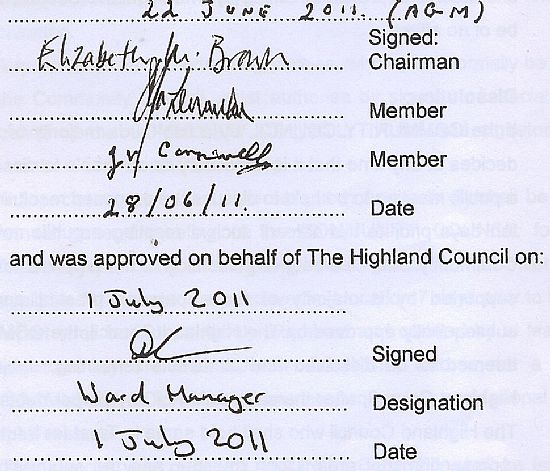 22 JUNE 2011. (AGM)
Signed:
Elizabeth M. Brown Chairman
Member
J.W. Member
28/06/11. Date
and was approved on behalf of The Highland Council on:
1 July 2011
Signed
Ward Manager Designation
1 July 2011 Date